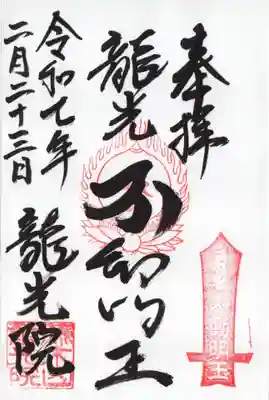 奉拝
龍光
不動明王
令和七年
二月二十三日
龍光院